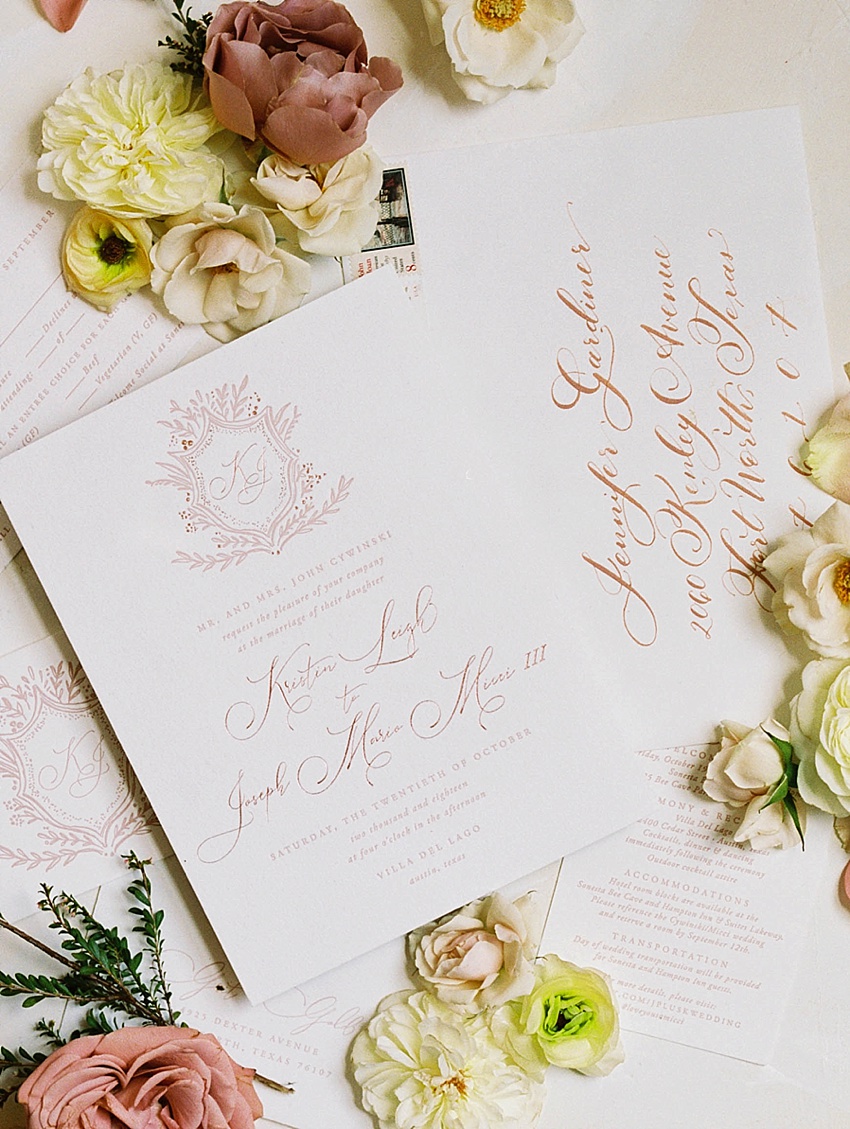 KJ
MR. AND MRS. JOHN CYWINSKI
request the pleasure of your company
at the marriage of their daughter
Kristin Leigh
to
Joseph Mario Micci III
SATURDAY, THE TWENTIETH OF OCTOBER
two thousand and eighteen
at four o'clock in the afternoon
VILLA DEL LAGO
austin, texas
Jennifer Gardiner
2060 Kenley Avenue
Fort Worth, Texas
7 6 1 0 7
SEPTEMBER
Declines
of
AN ENTRÉE CHOICE FOR EA
Beef
Vegetarian (V, GF)
Welcome Social at
(GF)
KJ
DEXTER AVENUE
TEXAS 76107
October 19
Sonesta
Bee Cave
MONY & REC
Villa Del Lago
400 Cedar Street - Austin, Texas
Cocktails, dinner & dancing
immediately following the ceremony
Outdoor cocktail attire
ACCOMMODATIONS
Hotel room blocks are available at the
Sonesta Bee Cave and Hampton Inn & Suites Lakeway.
Please reference the Cywinski/Micci wedding
and reserve a room by September 12th.
TRANSPORTATION
Day of wedding transportation will be provided
for Sonesta and Hampton Inn guests.
more details, please visit:
.COM/JPLUSKWEDDING